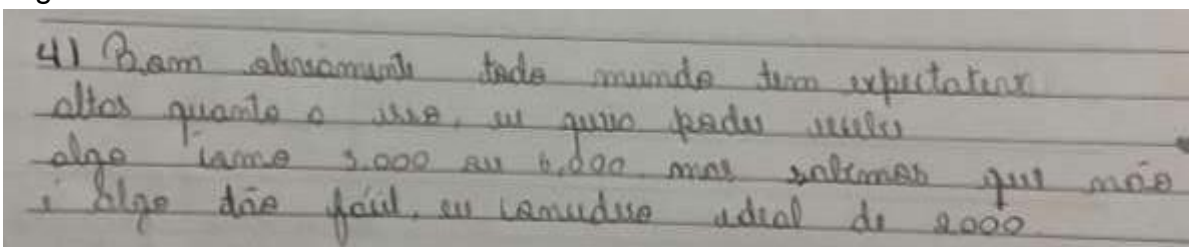 4) Bom obviamente todo mundo tem expectativa
altas quanto a isso, eu queria poder receber
algo como 5.000 ou 6.000 mas sabemos que não
é algo dão fácil, eu considero ideal de 2000